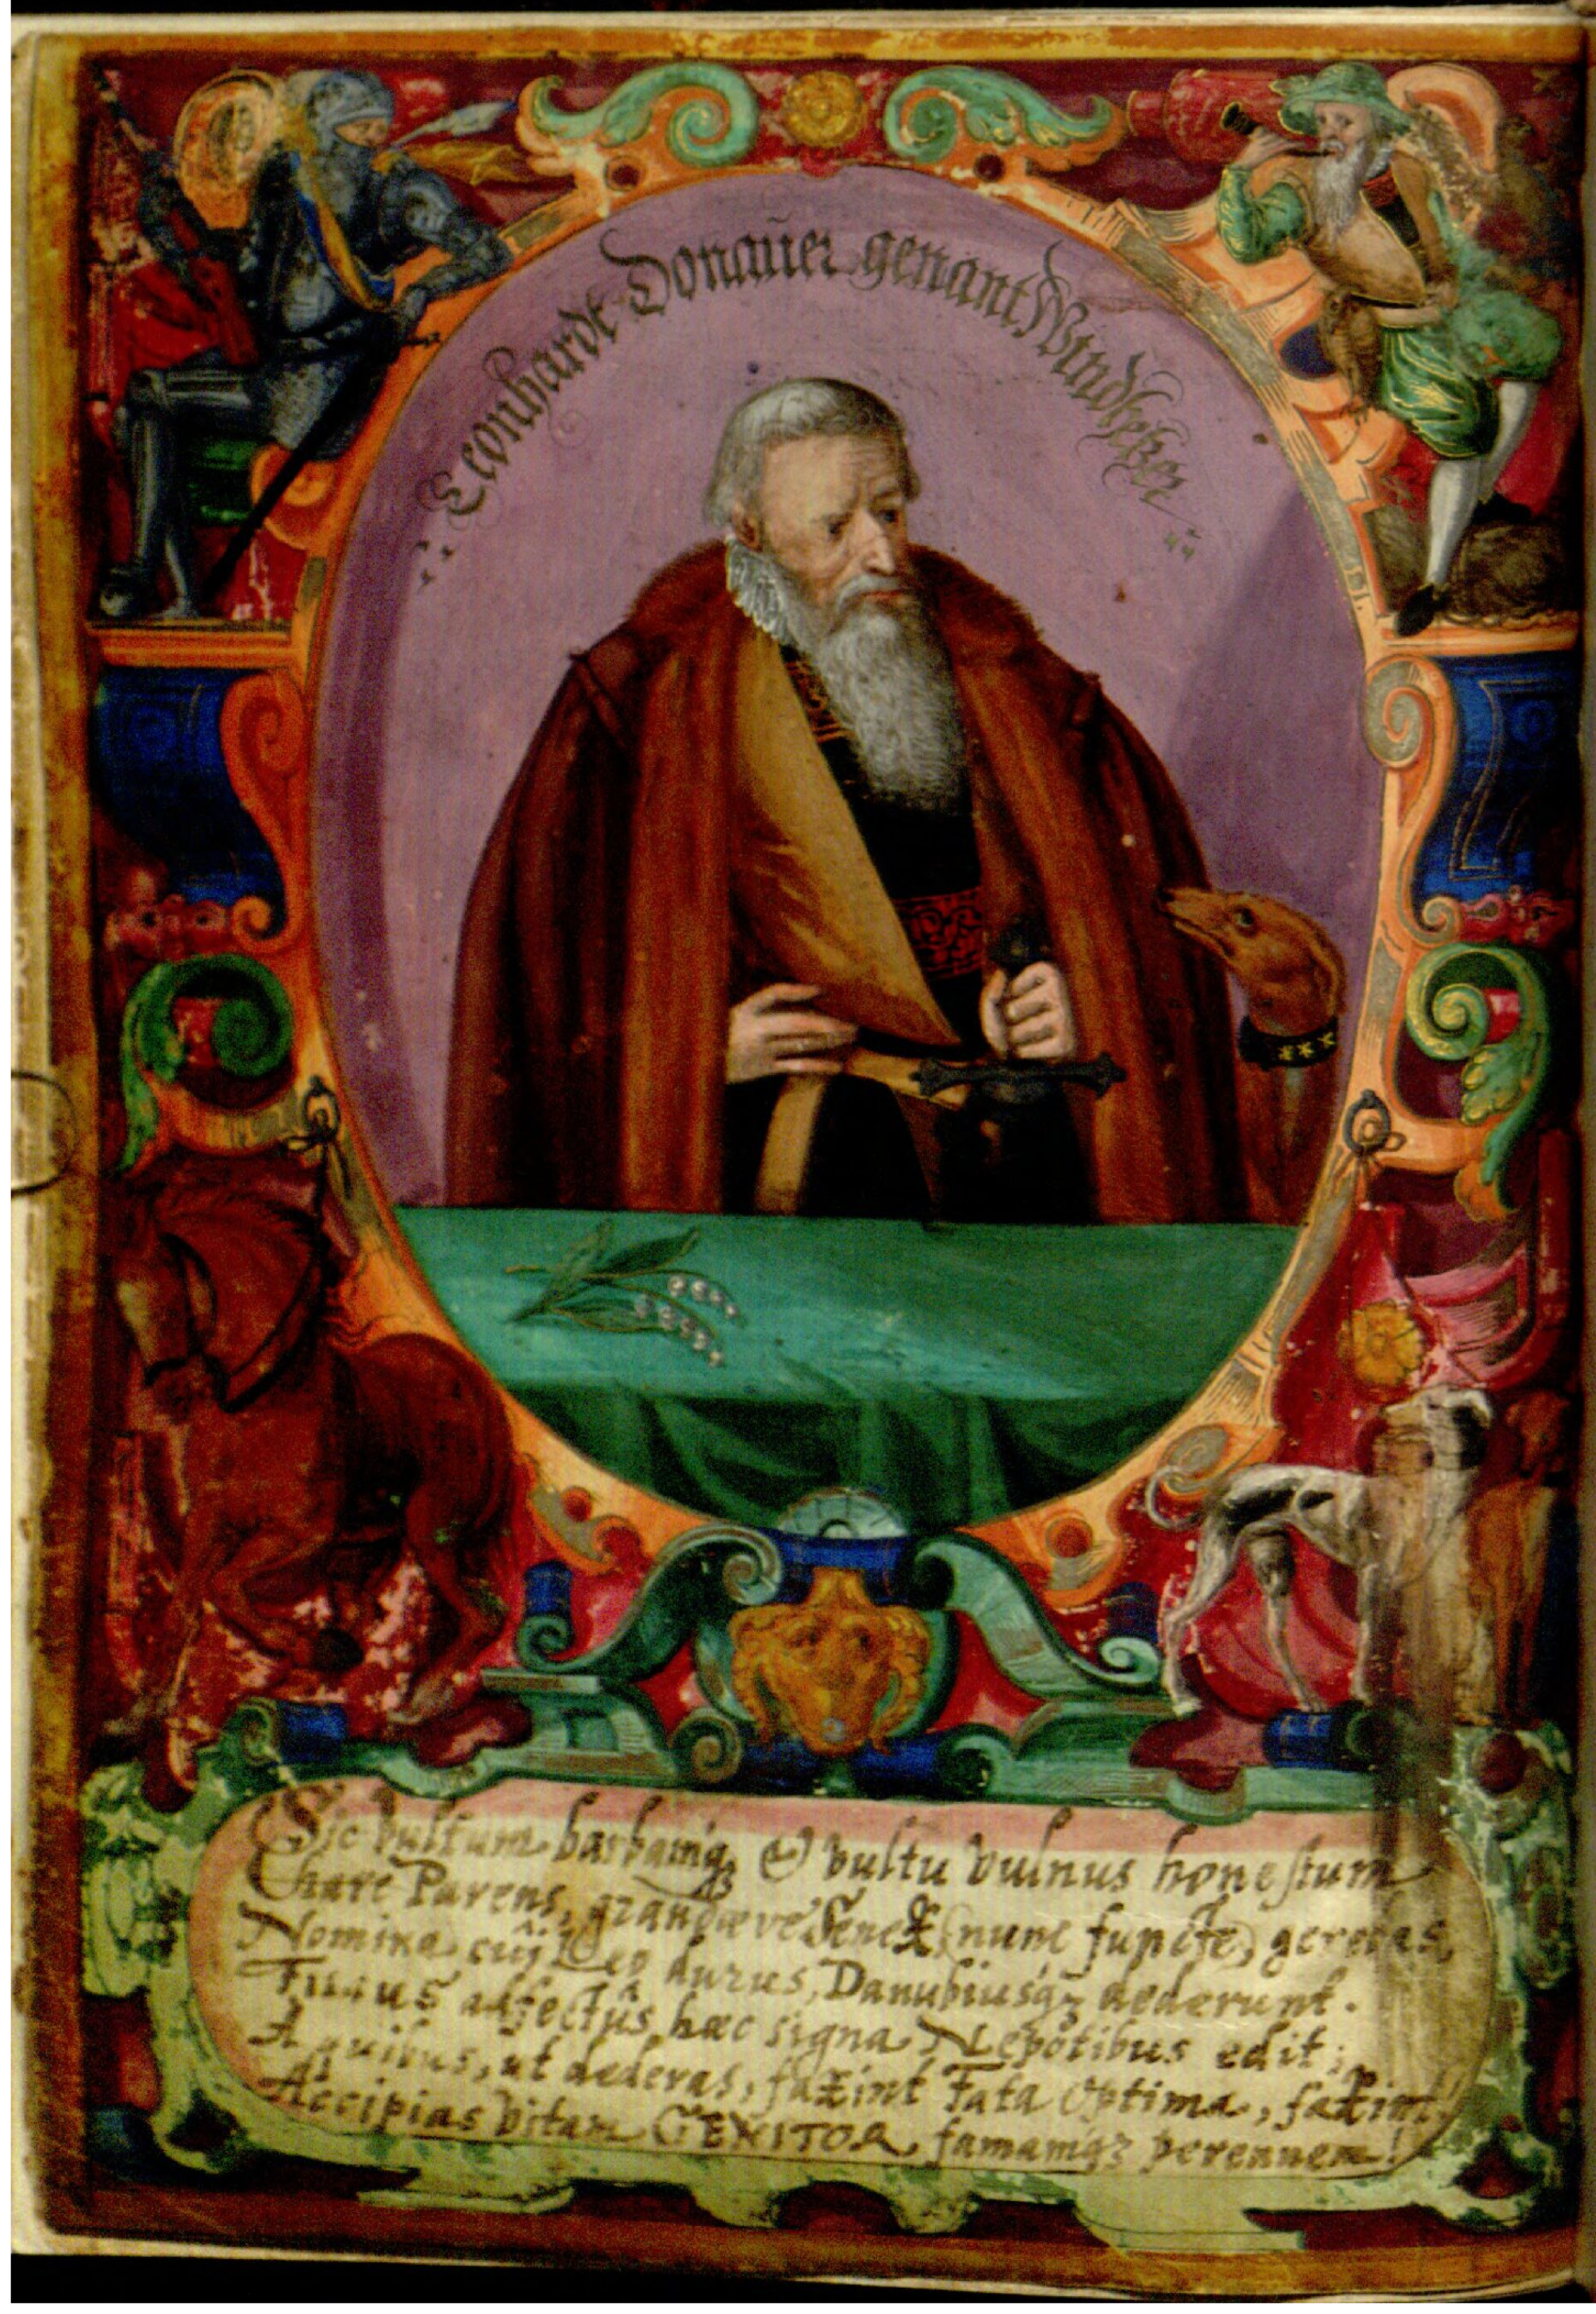 Leonhardt Donaũer genant Windheßer
Sic vultum barbamq́₃ & vultu vulnus honestum
Chare Parens, grandæve Senex (nunc supeřste) gerebas,
Nomina cuj̃ Leo durus, Danubiusq́₃ dederunt.
Filius adfectûs hæc signa Nepôtibus edit;
A quibus, ut dederas, faxint Fata Optima, faxint!
Accipias vitam GENITOR, famamq́₃ perennem!